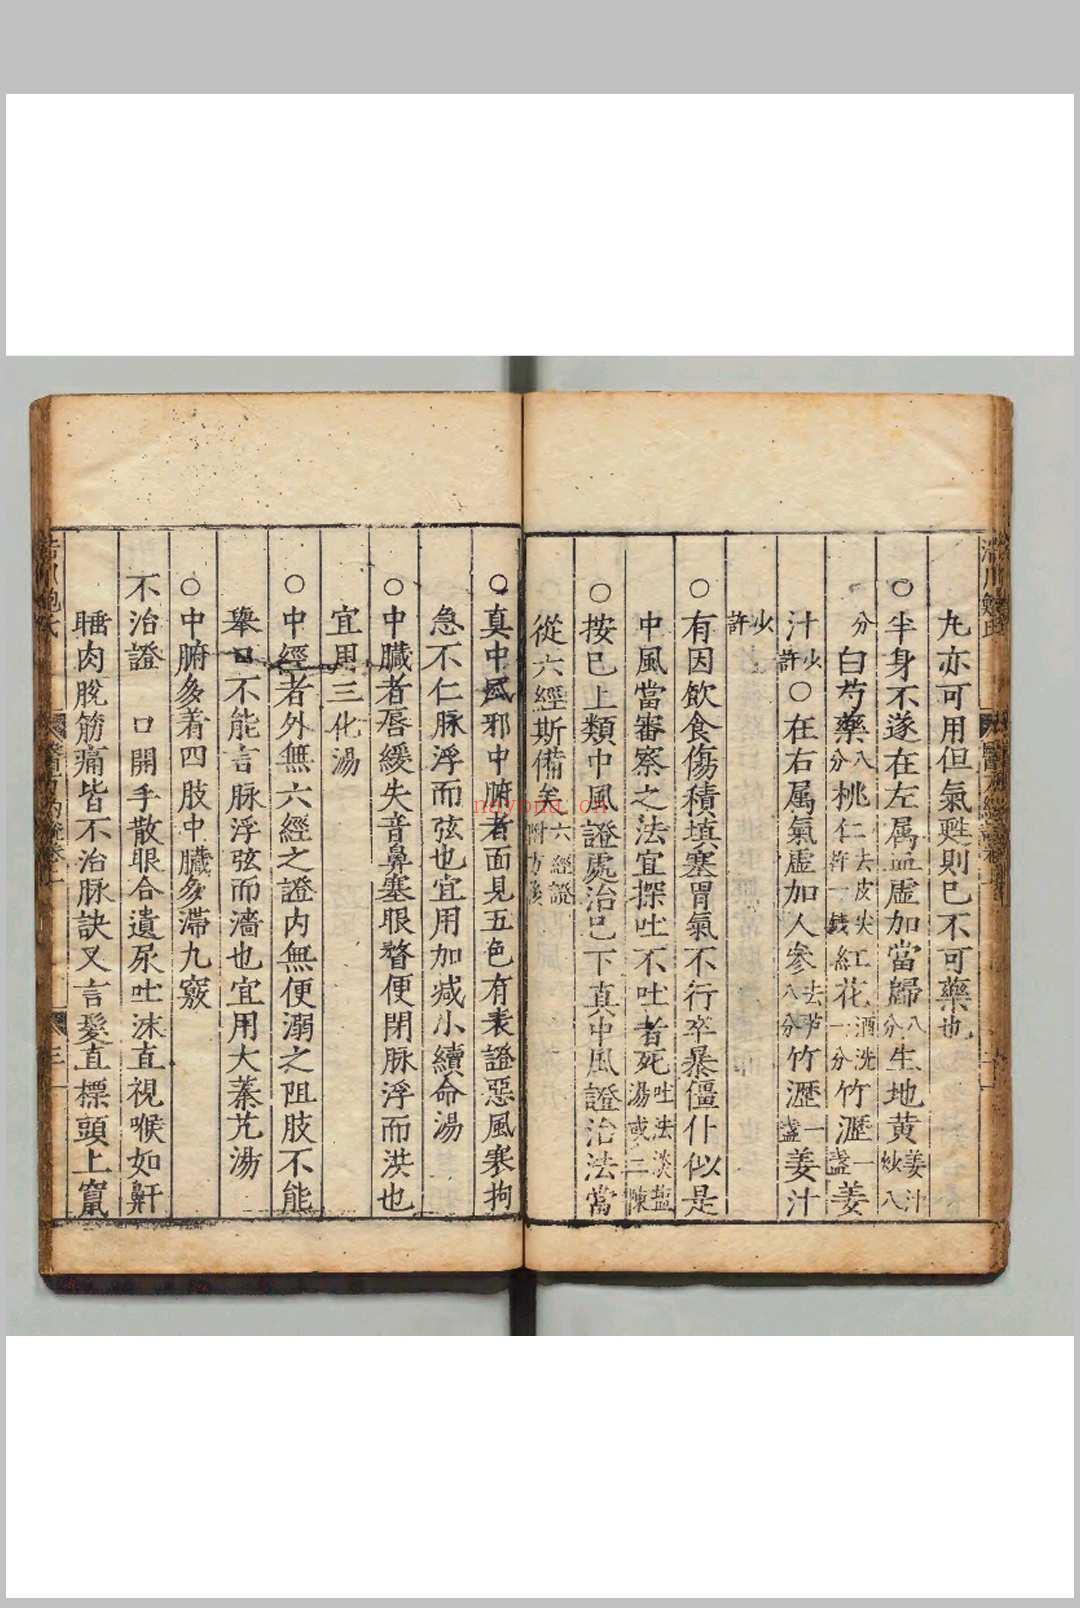 九亦可用但氣甦則已不可藥也
○半身不遂在左屬血虛加當歸八分生地黃姜汁炒八
分白芍藥八分桃仁二十去皮尖紅花酒洗一分竹瀝一盞姜
汁少許○在右屬氣虛加人參去芦八分竹瀝一盞姜汁
少許
○有因飲食傷積填塞胃氣不行卒暴僵仆似是
中風當審察之法宜探吐不吐者死吐法淡塩湯或二陳
○按已上類中風證處治已下真中風證治法當
從六經斯備矣六經證附方後
○真中風邪中腑者面見五色有表證惡風寒拘
急不仁脉浮而弦也宜用加减小續命湯
○中臟者唇緩失音鼻塞眼瞀便閉脉浮而洪也
宜用三化湯
○中經者外無六經之證内無便溺之阻肢不能
舉口不能言脉浮弦而濇也宜用大秦艽湯
○中腑多着四肢中臟多滯九竅
不治證 口開手散眼合遺尿吐沫直視喉如鼾
睡肉脫筋痛皆不治脉訣又言髮直標頭上竄
nayona.cn